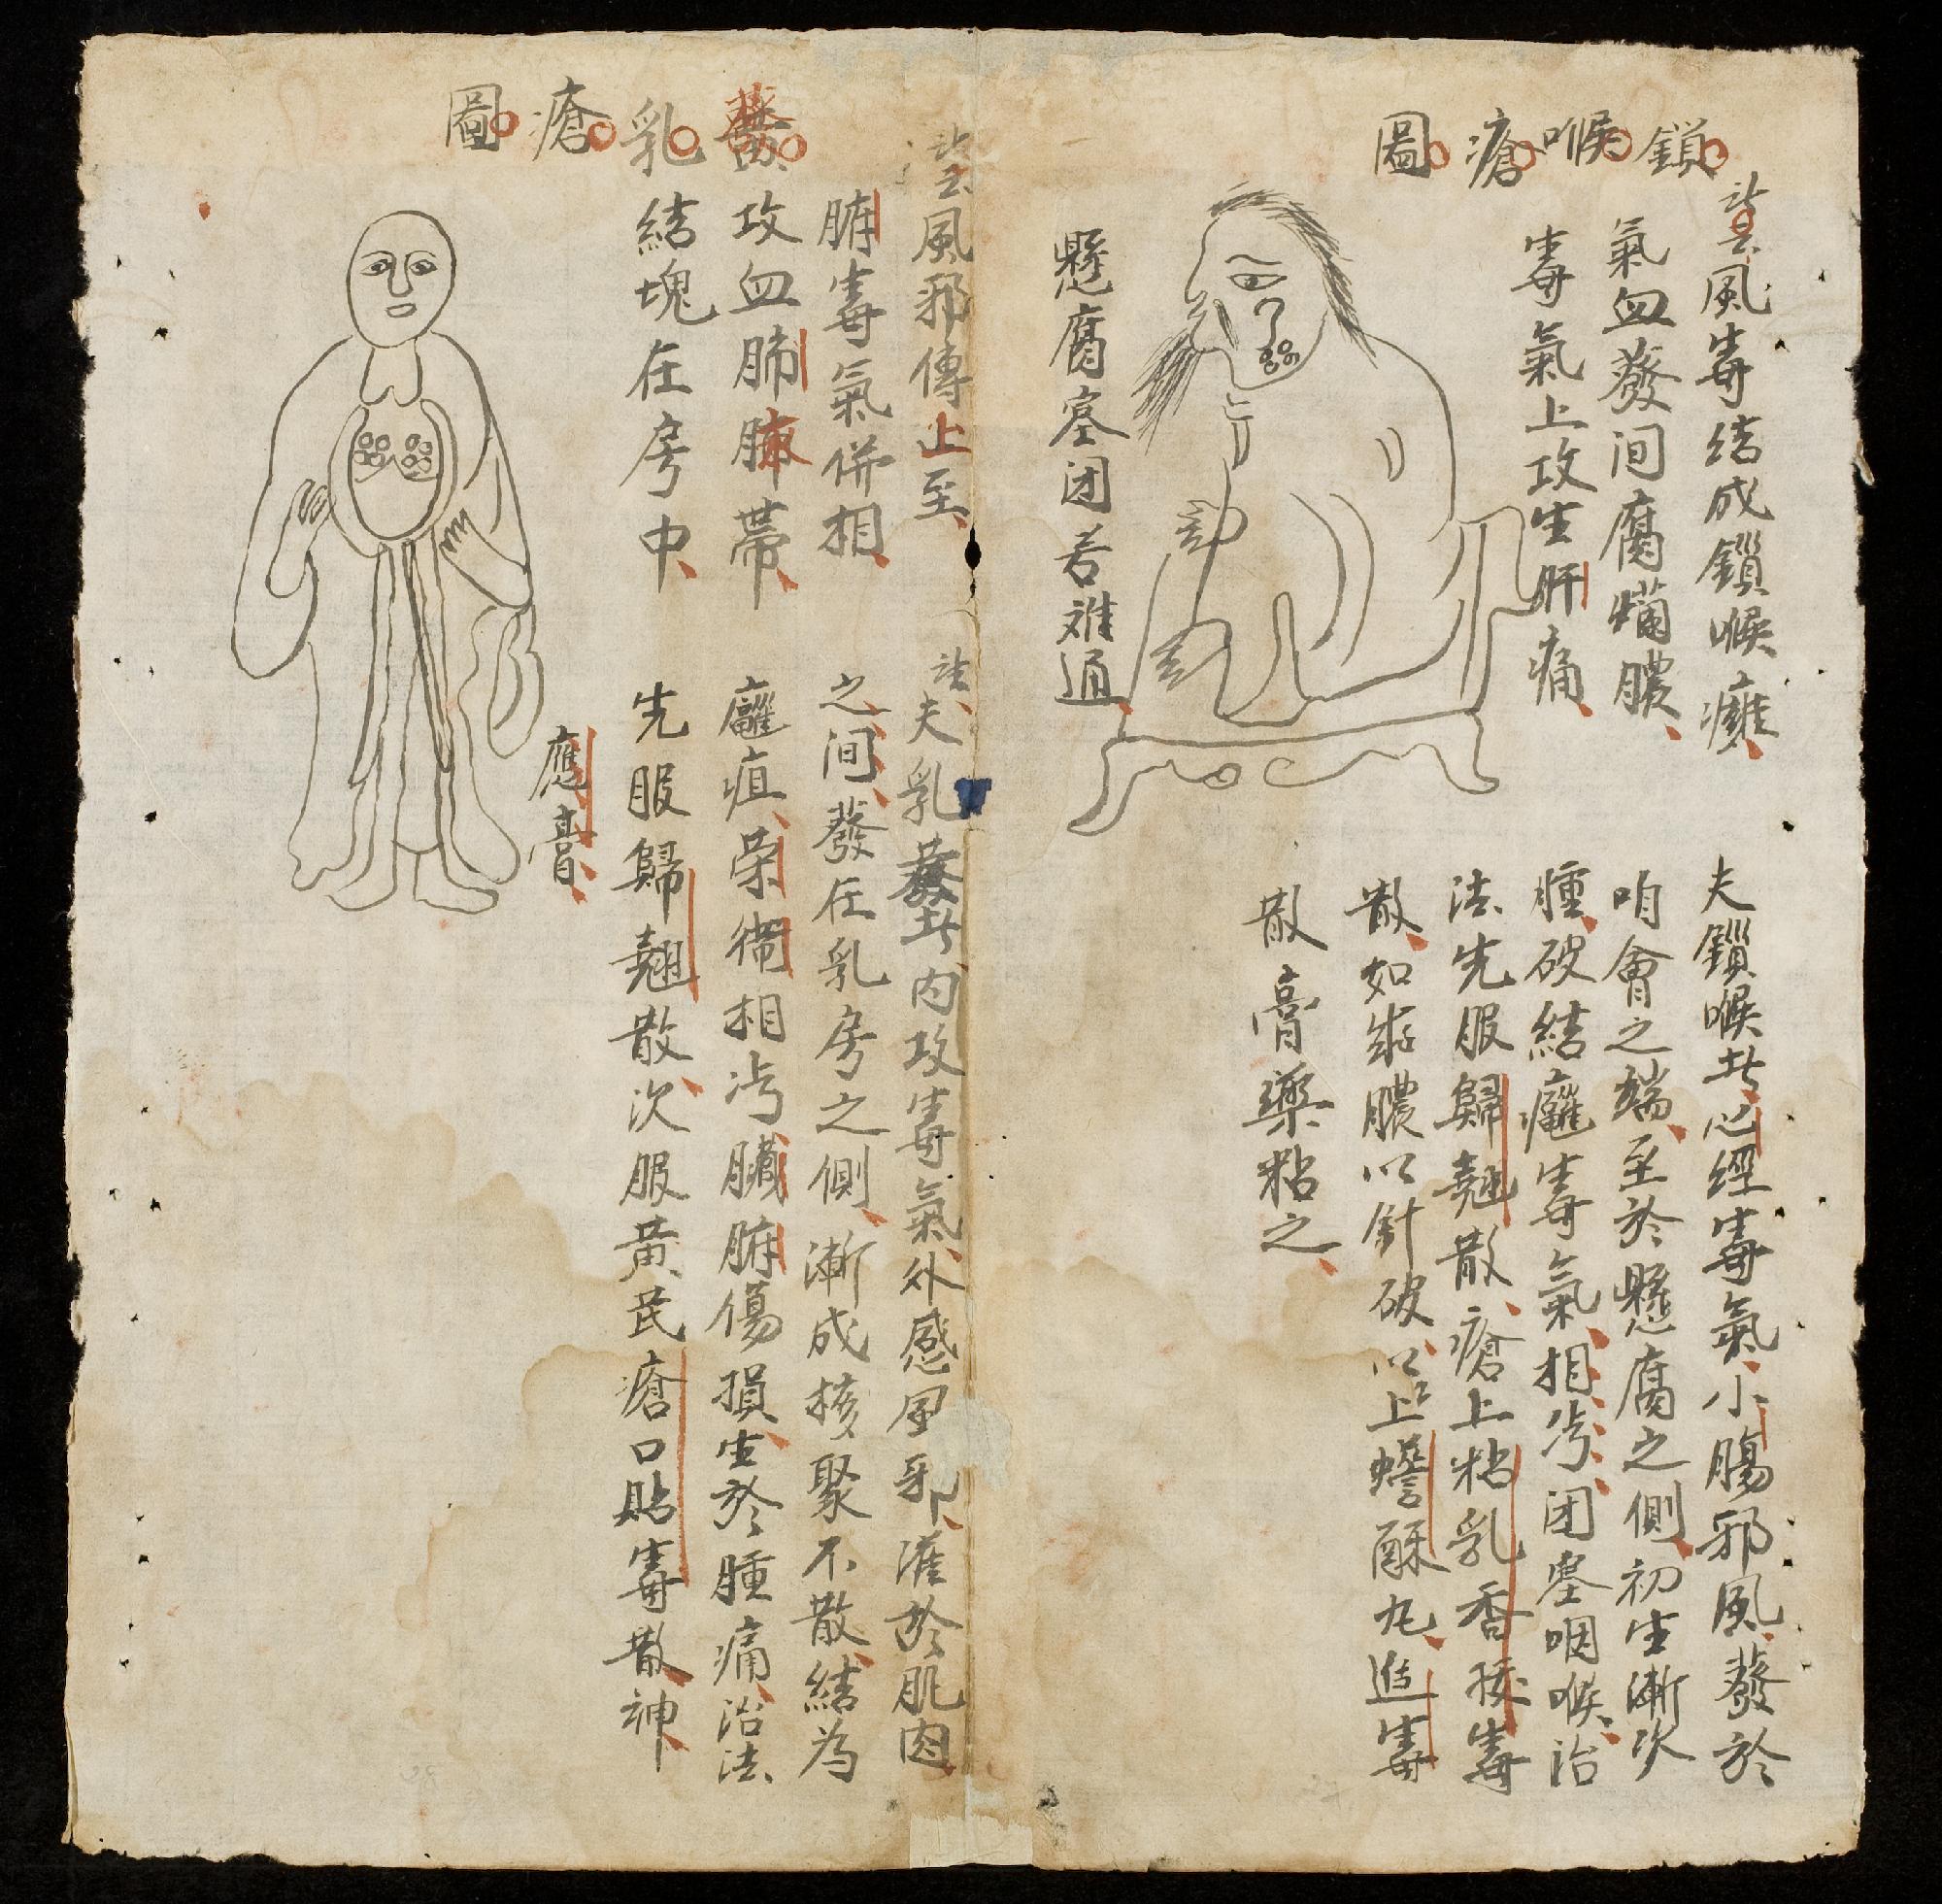 鎖喉瘡圖
詩云風毒結成鎖喉癰
氣血發间腐爛膿
毒氣上攻生肝痛
懸腐塞闭若难通
夫鎖喉者心經毒氣小腸邪風發於
咱會之端至於懸腐之側初生漸次
腫破結癰毒氣相冯闭塞咽喉治
法先服歸翹散瘡上粘乳香拔毒
散如紫膿以針破以上蟾酥丸追毒
散膏藥粘之
發乳瘡圖
詩云風邪傳上至
腑毒氣併相
攻血肺腋帶
結塊在房中
註夫乳發者內攻毒氣外感風邪灌於肌肉
之间發在乳房之側漸成核聚不散結為
癰疽荣衛相冯臟腑傷損生於腫痛治法
先服歸翹散次服黃芪瘡口貼毒散神
應膏